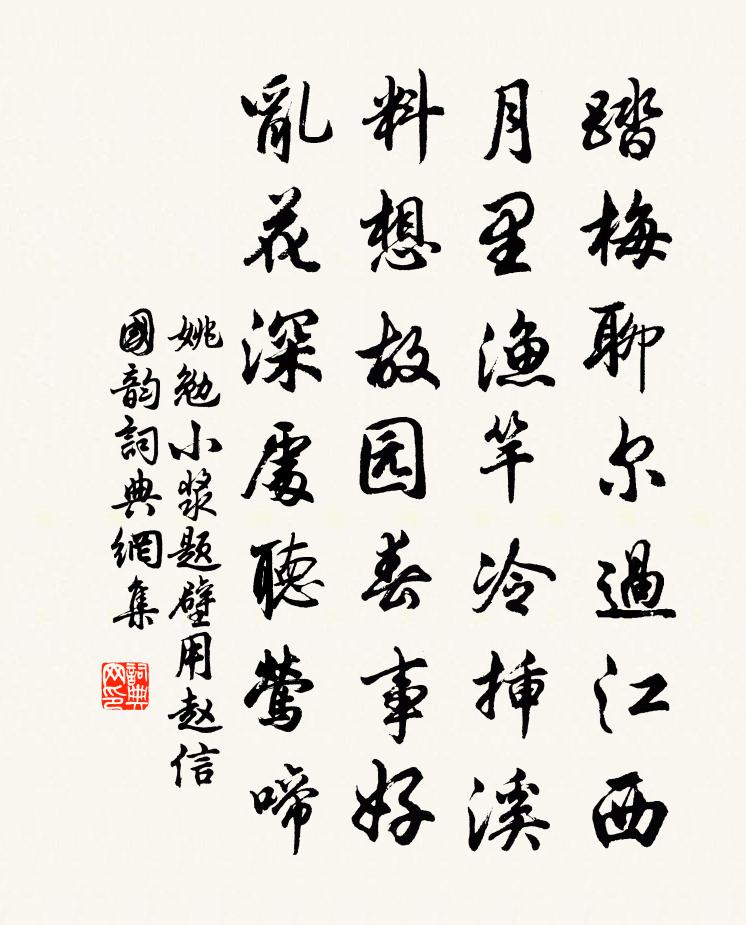 踏梅聊尔過江西
月里漁竿冷挿溪
料想故园春事好
亂花深處聽鶯啼
姚勉小漿題壁用趙信
國韵詞典網集
詞典网印